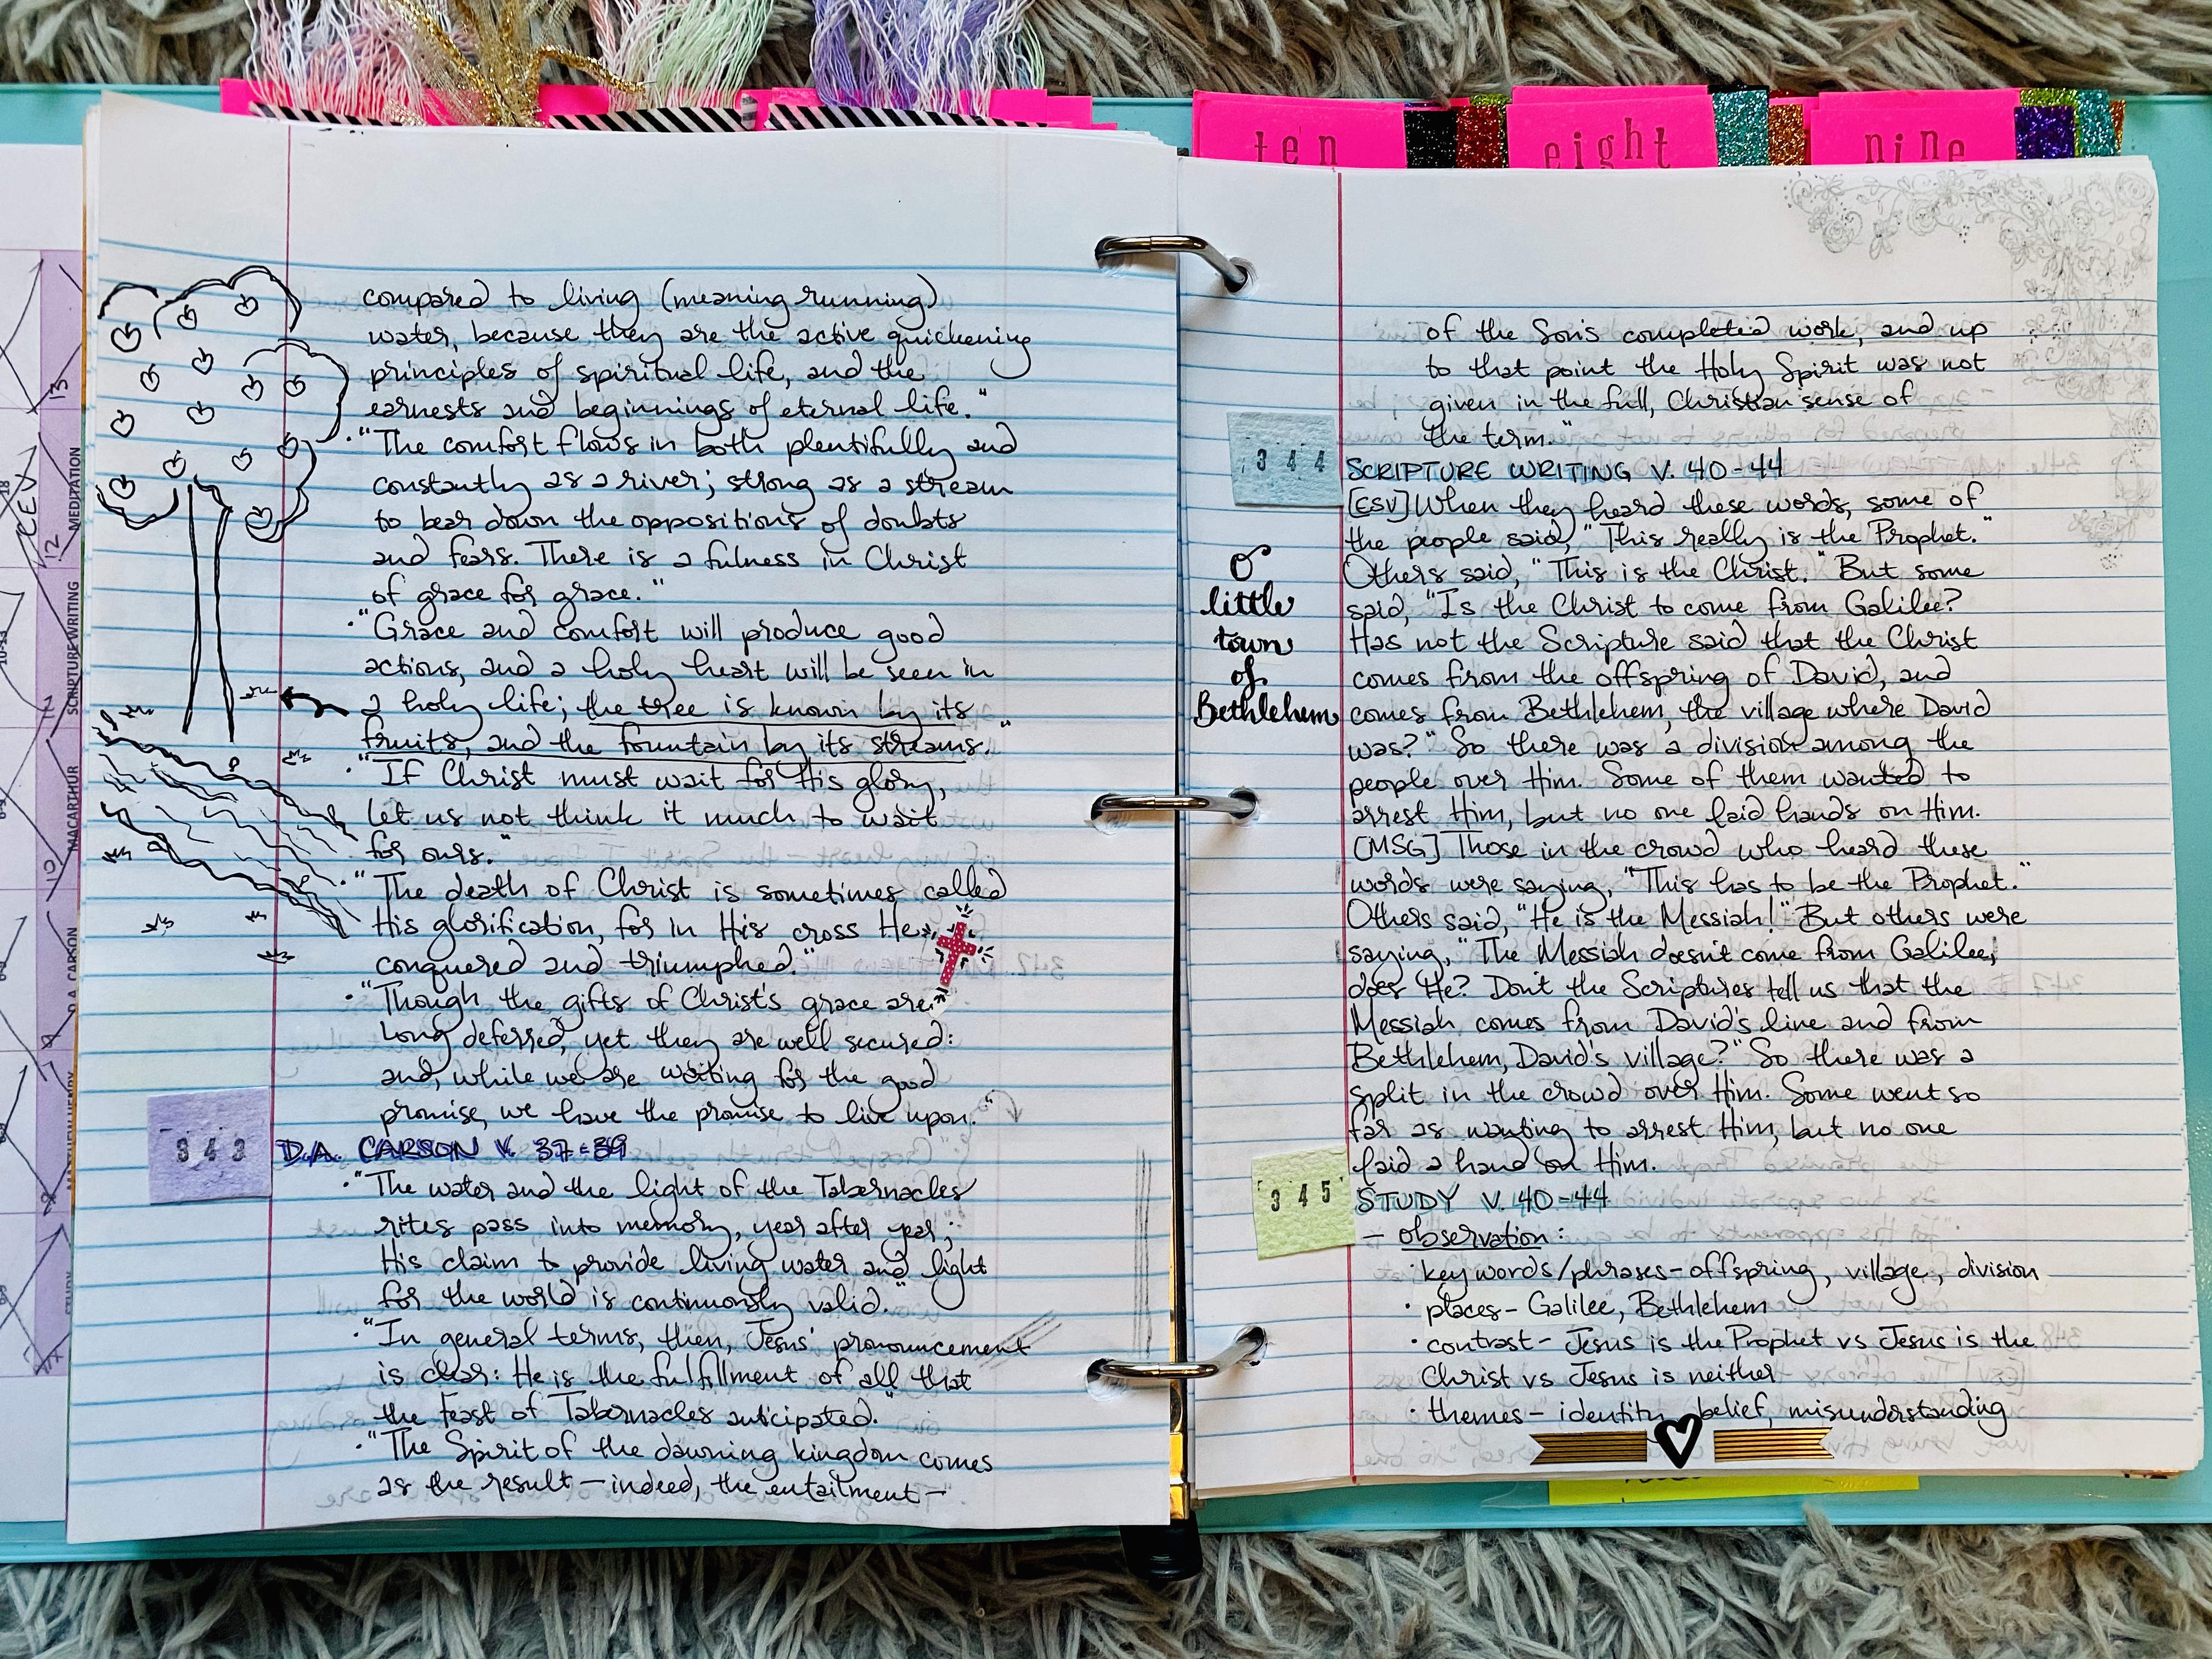 ten
eight
nine
13
18
CEV
12 MEDITATION
SCRIPTURE WRITING
MACARTHUR
10
D.A. CARSON
MATTHEW HENRY
STUDY
compared to living (meaning running)
water, because they are the active quickening
principles of spiritual life, and the
earnests and beginnings of eternal life."
• "The comfort flows in both plentifully and
constantly as a river; strong as a stream
to bear down the oppositions of doubts
and fears. There is a fulness in Christ
of grace for grace."
• "Grace and comfort will produce good
actions, and a holy heart will be seen in
a holy life; the tree is known by its
fruits, and the fountain by its streams."
• "If Christ must wait for His glory,
let us not think it much to wait
for ours."
• "The death of Christ is sometimes called
His glorification, for in His cross He
conquered and triumphed."
• "Though the gifts of Christ's grace are
long deferred, yet they are well secured:
and, while we are waiting for the good
promise, we have the promise to live upon."
343 D.A. CARSON V. 37-39
• "The water and the light of the Tabernacles
rites pass into memory, year after year;
His claim to provide living water and light
for the world is continuously valid."
• "In general terms, then, Jesus' pronouncement
is clear: He is the fulfillment of all that
the Feast of Tabernacles anticipated."
• "The Spirit of the dawning kingdom comes
as the result — indeed, the entailment —
of the Son's completed work, and up
to that point the Holy Spirit was not
given in the full, Christian sense of
the term."
344 SCRIPTURE WRITING V. 40-44
[ESV] When they heard these words, some of
the people said, "This really is the Prophet."
Others said, "This is the Christ." But some
said, "Is the Christ to come from Galilee?
Has not the Scripture said that the Christ
comes from the offspring of David, and
comes from Bethlehem, the village where David
was?" So there was a division among the
people over Him. Some of them wanted to
arrest Him, but no one laid hands on Him.
[MSG] Those in the crowd who heard these
words were saying, "This has to be the Prophet."
Others said, "He is the Messiah!" But others were
saying, "The Messiah doesn't come from Galilee,
does He? Don't the Scriptures tell us that the
Messiah comes from David's line and from
Bethlehem, David's village?" So there was a
split in the crowd over Him. Some went so
far as wanting to arrest Him, but no one
laid a hand on Him.
O
little
town
of
Bethlehem
345 STUDY V. 40-44
— observation:
• key words/phrases - offspring, village, division
• places - Galilee, Bethlehem
• contrast - Jesus is the Prophet vs Jesus is the
Christ vs Jesus is neither
• themes - identity, belief, misunderstanding